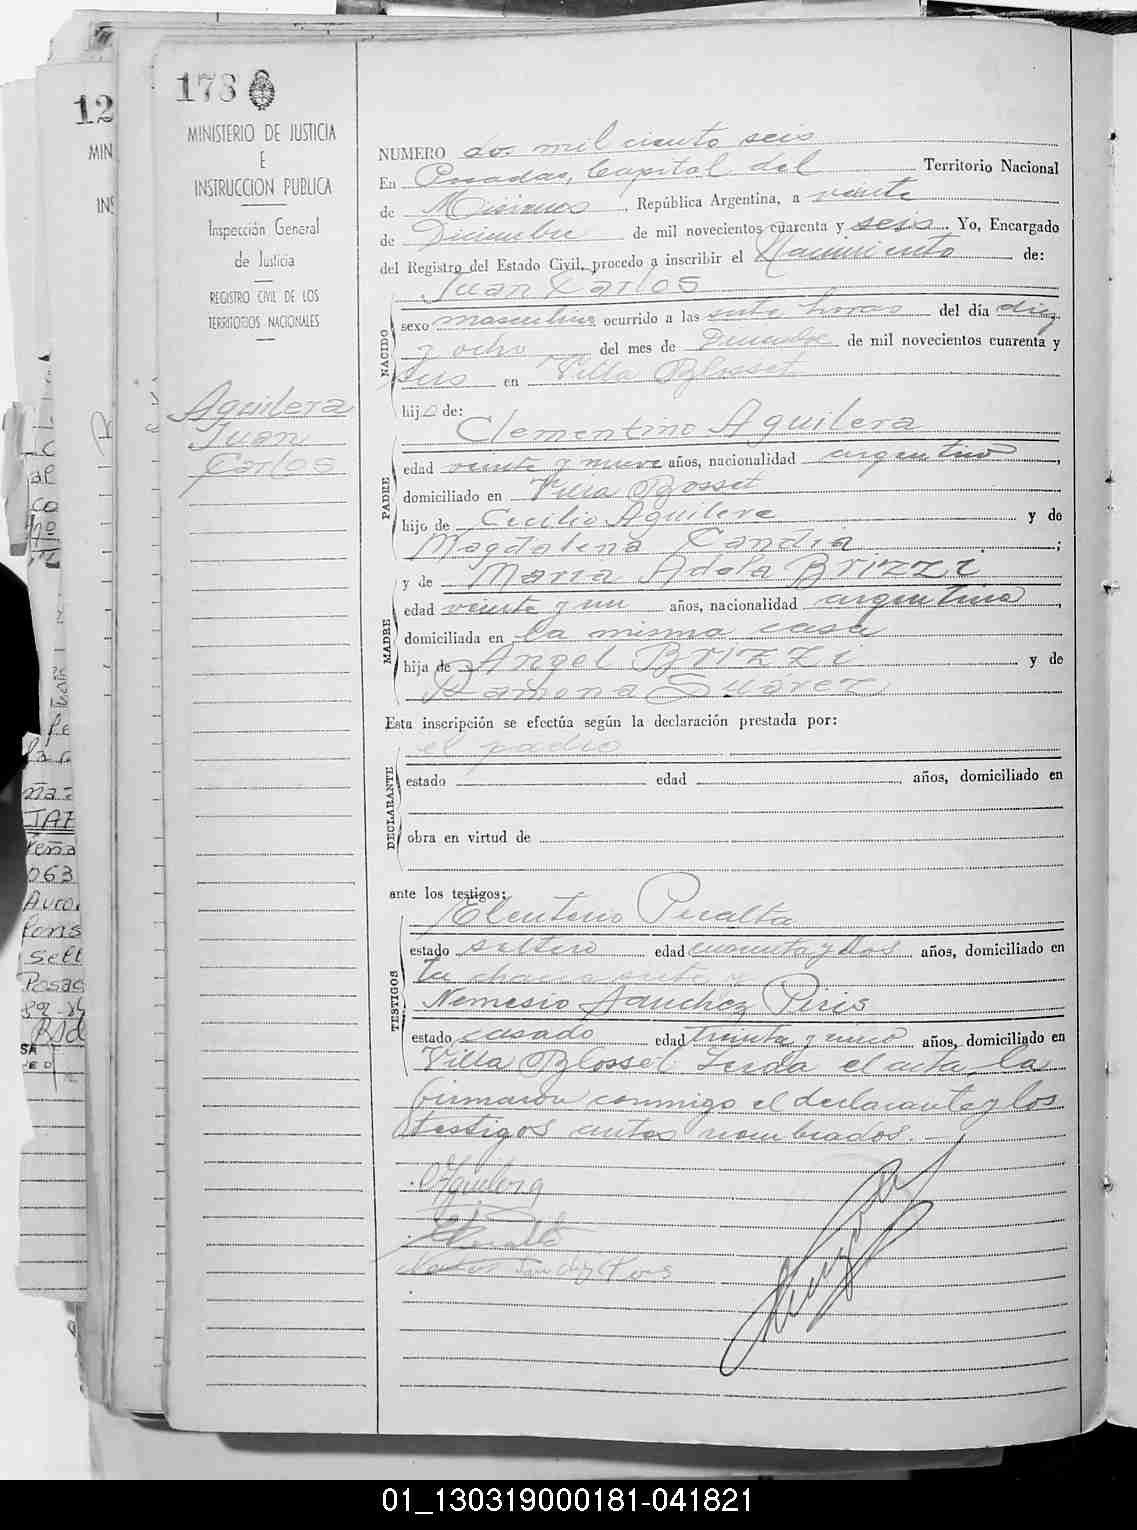 178
MINISTERIO DE JUSTICIA
E
INSTRUCCION PUBLICA
Inspección General
de Justicia
REGISTRO CIVIL DE LOS
TERRITORIOS NACIONALES
Aguilera
Juan
Carlos
12
MIN
INS
NUMERO dos mil ciento seis
En Posadas, Capital del Territorio Nacional
de Misiones, República Argentina, a veinte
de Diciembre de mil novecientos cuarenta y seis. Yo, Encargado
del Registro del Estado Civil, procedo a inscribir el Nacimiento de:
Juan Carlos
NACIDO
sexo masculino ocurrido a las siete horas del día diez
y ocho del mes de Diciembre de mil novecientos cuarenta y
seis en Villa Blosset
hijo de:
Clementino Aguilera
PADRE
edad veinte y nueve años, nacionalidad argentino,
domiciliado en Villa Blosset
hijo de Cecilio Aguilera y de
Magdalena Candia;
y de Maria Adela Brizzi
MADRE
edad veinte y un años, nacionalidad argentina,
domiciliada en la misma casa
hija de Angel Brizzi y de
Ramona Suárez
Esta inscripción se efectúa según la declaración prestada por:
el padre
DECLARANTE
estado edad años, domiciliado en
obra en virtud de
ante los testigos:
Eleuterio Peralta
TESTIGOS
estado soltero edad cuarenta y dos años, domiciliado en
Nemesio Sanchez Piris
estado casado edad treinta y cinco años, domiciliado en
Villa Blosset Leida el acta, la
firmaron conmigo el declarante y los
testigos antes nombrados. —
Aguilera
Peralta
01_130319000181-041821